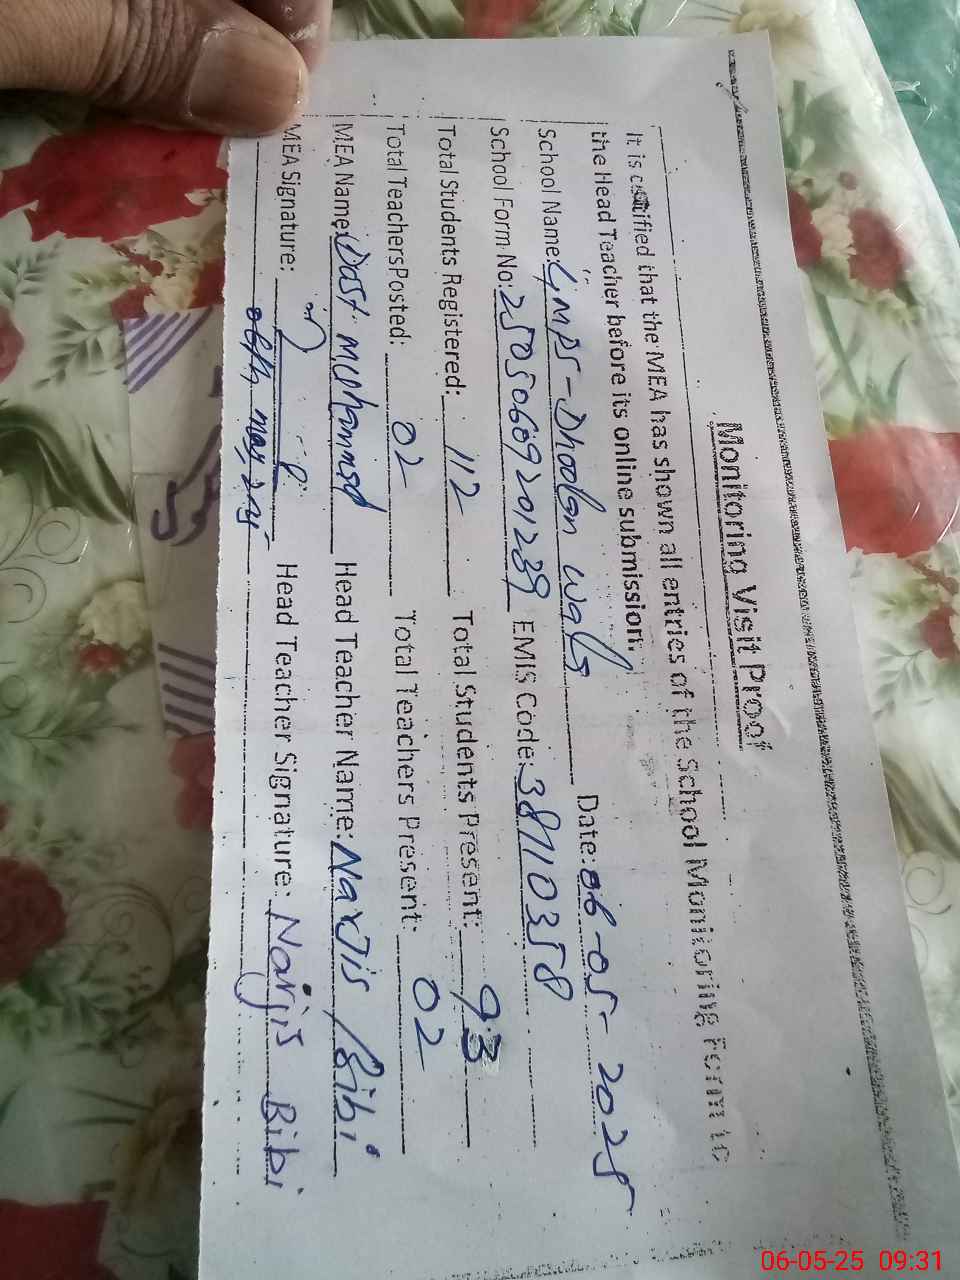 Monitoring Visit Proof
It is certified that the MEA has shown all entries of the School Monitoring Form to
the Head Teacher before its online submission.
School Name: GMPS-Dhoolan wala Date: 06-05-2025
School Form No: 25050609201239 EMIS Code: 38110358
Total Students Registered: 112 Total Students Present: 93
Total Teachers Posted: 02 Total Teachers Present: 02
MEA Name: Dost Muhammad Head Teacher Name: Narjis Bibi
MEA Signature: Head Teacher Signature: Narjis Bibi
06th may 2025
06-05-25 09:31